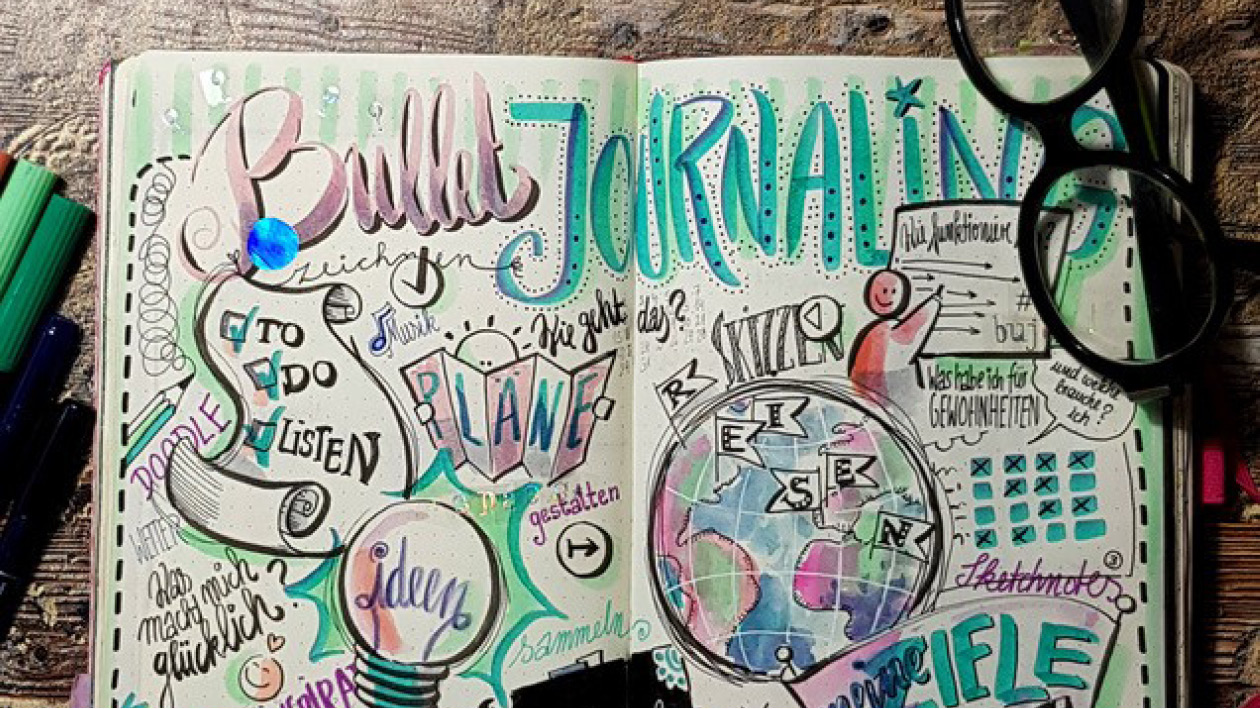 Bullet JOURNALING
zeichnen
TO
DO
LISTEN
Musik
Wie geht das?
PLÄNE
SKIZZEN
Wie funktioniert
#
buj
Was habe ich für
GEWOHNHEITEN
und welche
brauche
ich?
REISEN
DOODLE
WEITER
gestalten
Ideen
Was
macht mich
glücklich?
sammeln
Sketchnotes
3
meine ZIELE